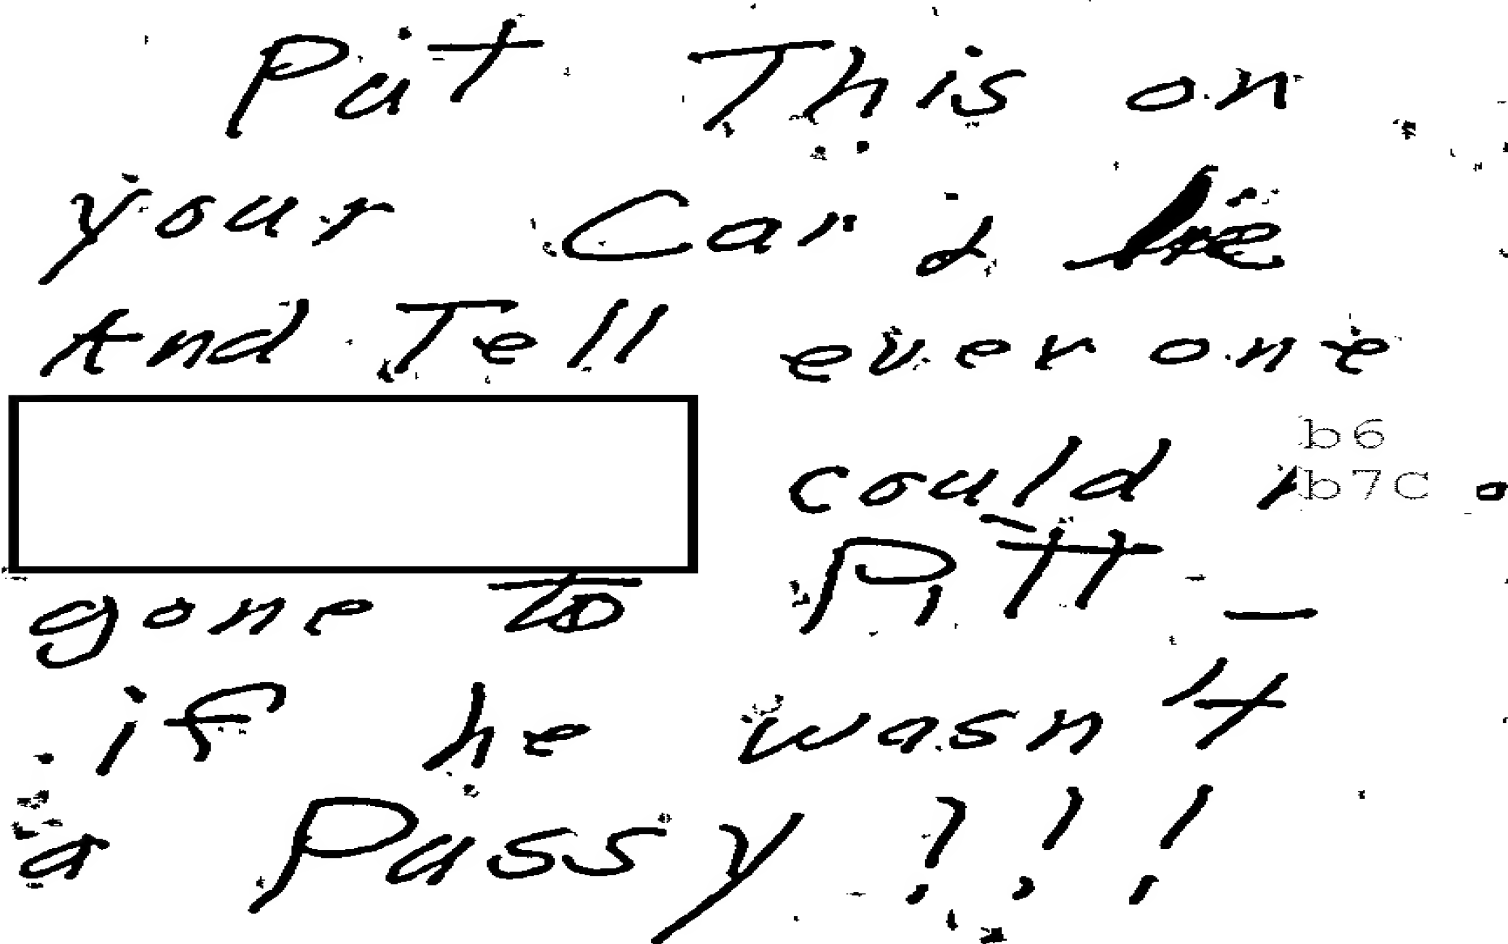 Put This on
your Car &
And Tell ever one
could b6
b7C
gone to Pitt -
if he wasn't
a Pussy !!!